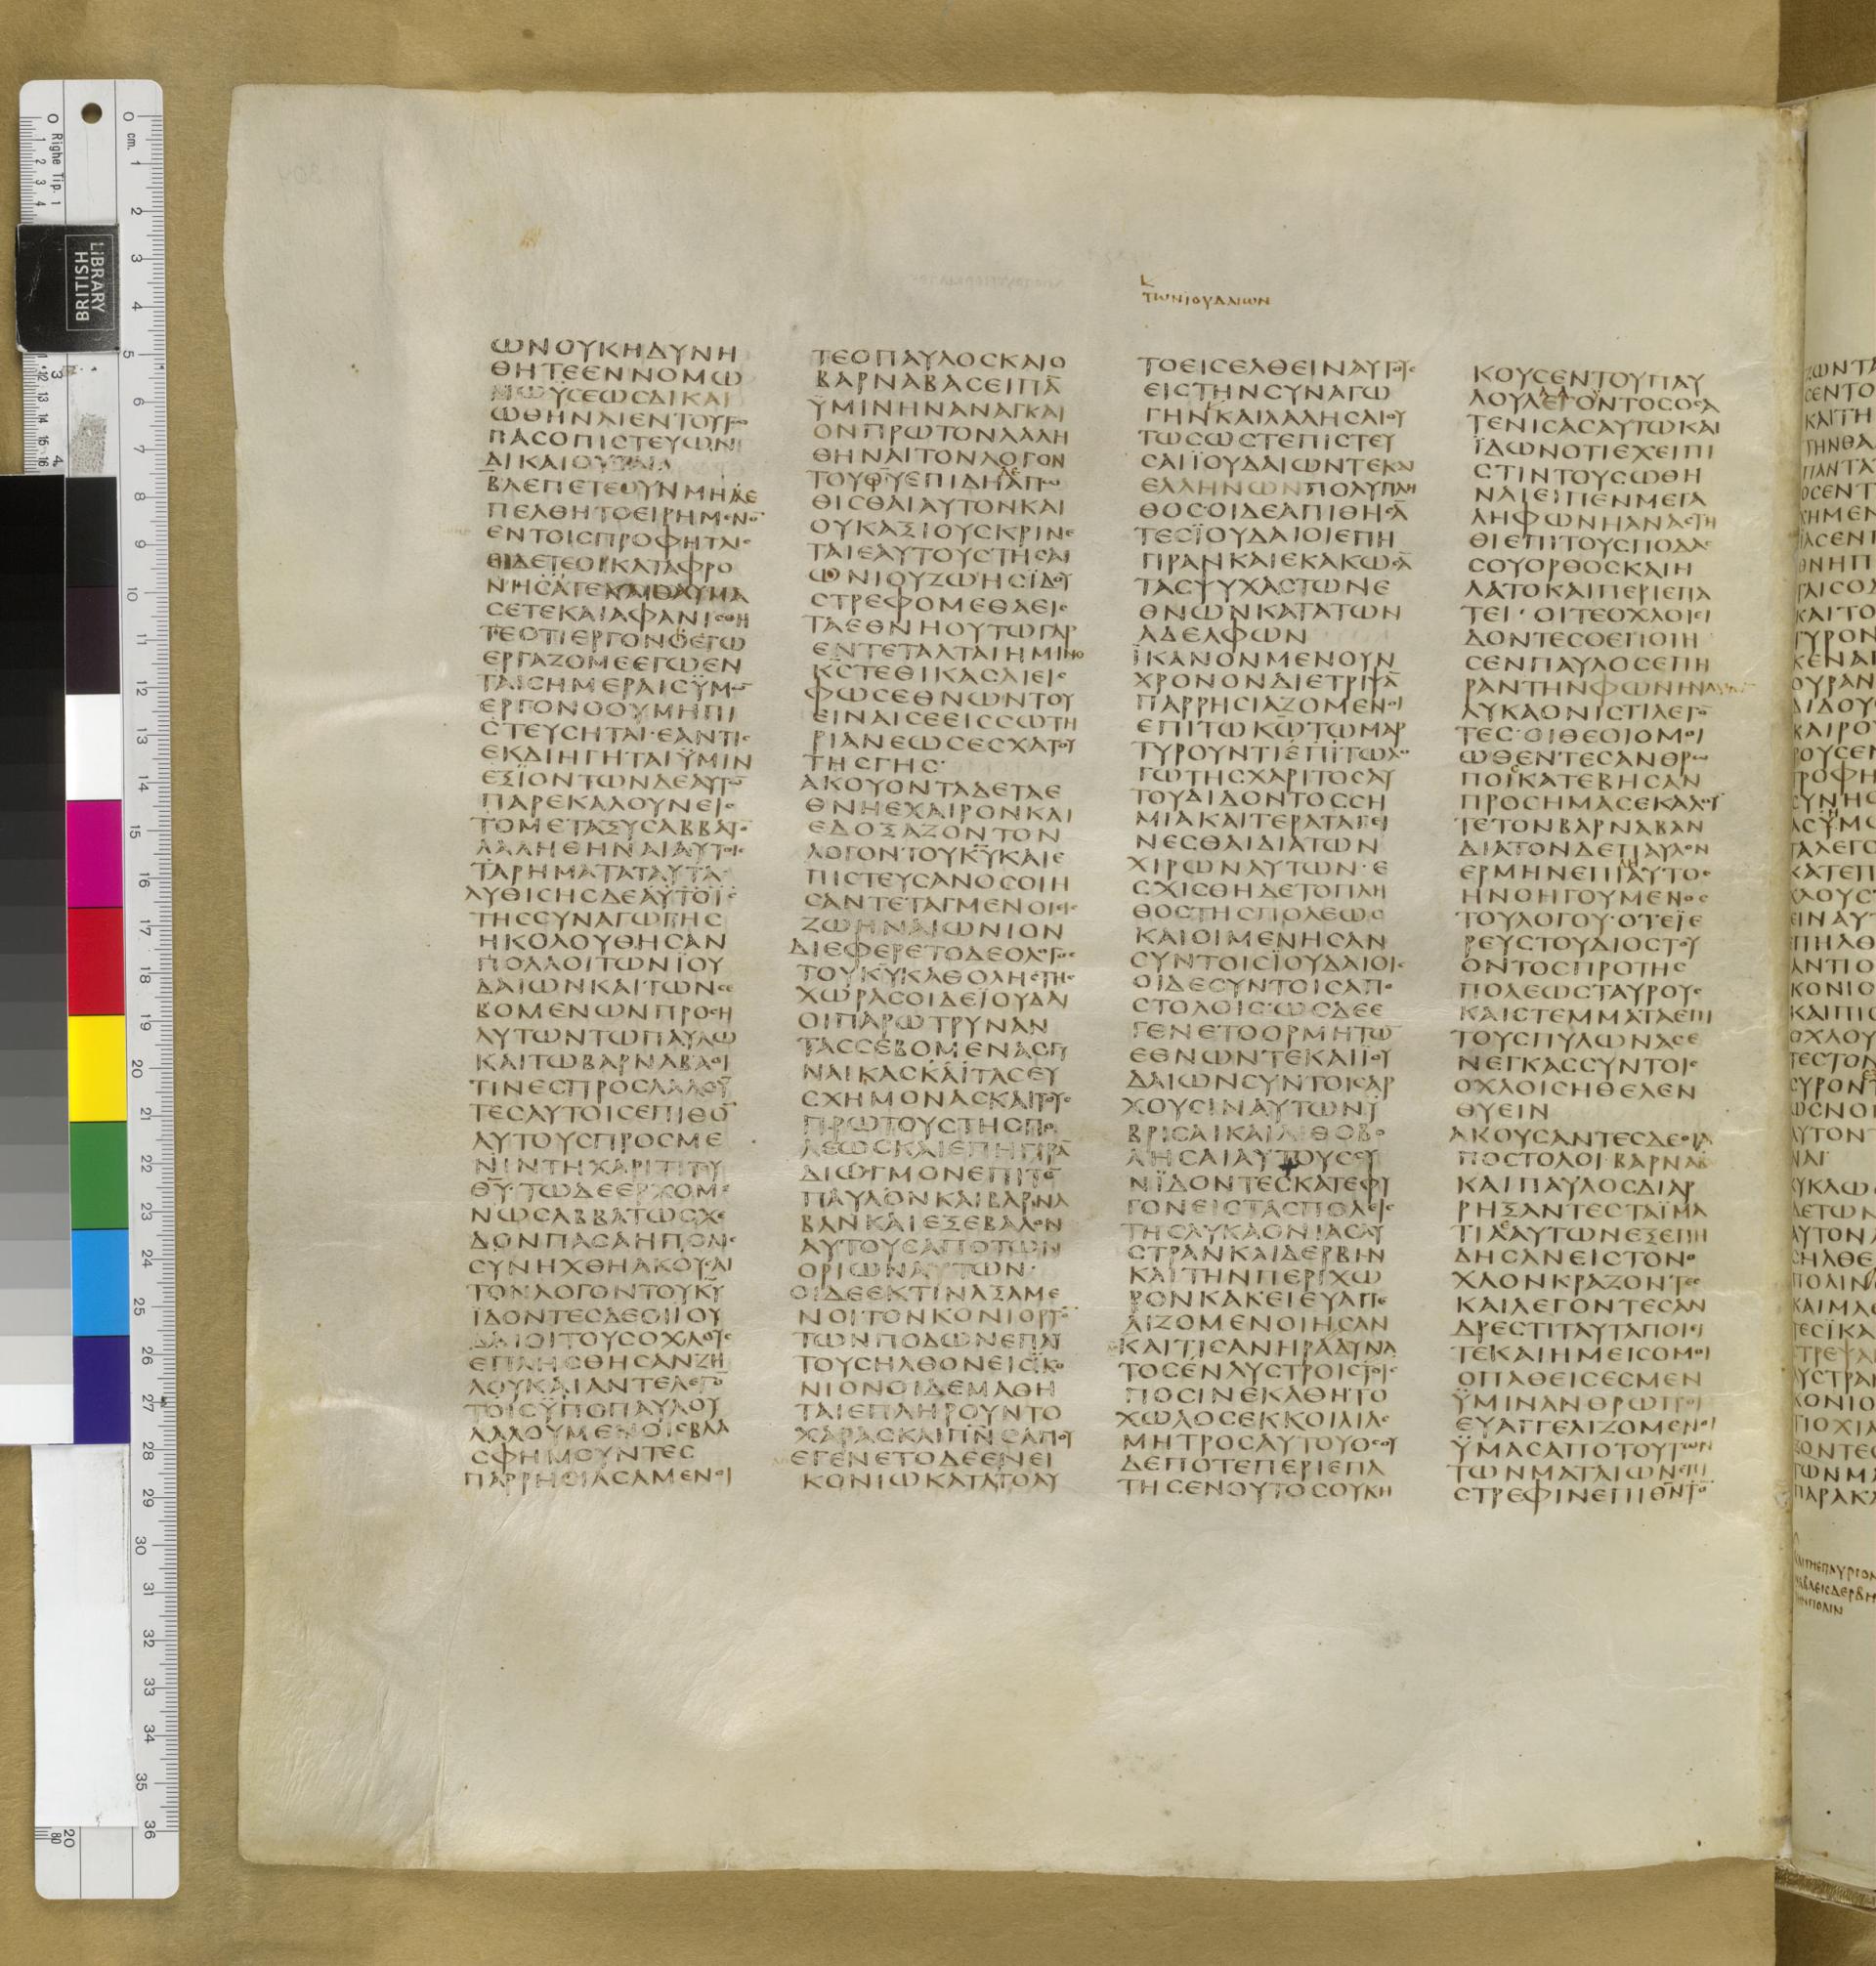 ΤΩΝΙΟΥΔΑΙΩΝ
ΩΝΟΥΚΗΔΥΝΗ
ΘΗΤΕΕΝΝΟΜΩ
ΜΩΫϹΕΩϹΔΙΚΑΙ
ΩΘΗΝΑΙΕΝΤΟΥΤΩ
ΠΑϹΟΠΙϹΤΕΥΩΝ
ΔΙΚΑΙΟΥΤΑΙ
ΒΛΕΠΕΤΕΟΥΝΜΗ
ΠΕΛΘΗΤΟΕΙΡΗΜΕΝΟ̅
ΕΝΤΟΙϹΠΡΟΦΗΤΑΙϹ
ΙΔΕΤΕΟΙΚΑΤΑΦΡΟ
ΝΗΤΑΙΚΑΙΘΑΥΜΑ
ϹΕΤΕΚΑΙΑΦΑΝΙϹΘΗ
ΤΕΟΤΙΕΡΓΟΝΟΕΓΩ
ΕΡΓΑΖΟΜΕΕΓΩΕΝ
ΤΑΙϹΗΜΕΡΑΙϹΫΜΩ̅
ΕΡΓΟΝΟΟΥΜΗΠΙ
ϹΤΕΥϹΗΤΑΙ·ΕΑΝΤΙϹ
ΕΚΔΙΗΓΗΤΑΙΫΜΙΝ
ΕΞΪΟΝΤΩΝΔΕΑΥΤΩ̅
ΠΑΡΕΚΑΛΟΥΝΕΙϹ
ΤΟΜΕΤΑΞΥϹΑΒΒΑΤΟ̅
ΛΑΛΗΘΗΝΑΙΑΥΤΟΙϹ
ΤΑΡΗΜΑΤΑΤΑΥΤΑ
ΛΥΘΙϹΗϹΔΕΑΥΤΟΙϹ
ΤΗϹϹΥΝΑΓΩΓΗϹ
ΗΚΟΛΟΥΘΗϹΑΝ
ΠΟΛΛΟΙΤΩΝΪΟΥ
ΔΑΙΩΝΚΑΙΤΩΝϹΕ
ΒΟΜΕΝΩΝΠΡΟϹΗ
ΛΥΤΩΝΤΩΠΑΥΛΩ
ΚΑΙΤΩΒΑΡΝΑΒΑΟΙ
ΤΙΝΕϹΠΡΟϹΛΑΛΟΥ̅
ΤΕϹΑΥΤΟΙϹΕΠΙΘΟ̅
ΑΥΤΟΥϹΠΡΟϹΜΕ
ΝΙΝΤΗΧΑΡΙΤΙΤΟΥ
Θ̅Υ̅·ΤΩΔΕΕΡΧΟΜΕ
ΝΩϹΑΒΒΑΤΩϹΧΕ
ΔΟΝΠΑϹΑΗΠΟΛΙϹ
ϹΥΝΗΧΘΗΑΚΟΥϹΑΙ
ΤΟΝΛΟΓΟΝΤΟΥΚ̅Υ̅
ΪΔΟΝΤΕϹΔΕΟΙΪΟΥ
ΔΑΙΟΙΤΟΥϹΟΧΛΟΥϹ
ΕΠΛΗϹΘΗϹΑΝΖΗ
ΛΟΥΚΑΙΑΝΤΕΛΕΓΟ̅
ΤΟΙϹΫΠΟΠΑΥΛΟΥ
ΛΑΛΟΥΜΕΝΟΙϹΒΛΑ
ϹΦΗΜΟΥΝΤΕϹ
ΠΑΡΡΗϹΙΑϹΑΜΕΝΟΙ
ΤΕΟΠΑΥΛΟϹΚΑΙΟ
ΒΑΡΝΑΒΑϹΕΙΠΑ̅
ΫΜΙΝΗΝΑΝΑΓΚΑΙ
ΟΝΠΡΩΤΟΝΛΑΛΗ
ΘΗΝΑΙΤΟΝΛΟΓΟΝ
ΤΟΥΘ̅Υ̅ΕΠΙΔΗΑΠΩ
ΘΙϹΘΑΙΑΥΤΟΝΚΑΙ
ΟΥΚΑΞΙΟΥϹΚΡΙΝΕ
ΤΑΙΕΑΥΤΟΥϹΤΗϹΑΙ
ΩΝΙΟΥΖΩΗϹΪΔΟΥ
ϹΤΡΕΦΟΜΕΘΑΕΙϹ
ΤΑΕΘΝΗΟΥΤΩΓΑΡ
ΕΝΤΕΤΑΛΤΑΙΗΜΙΝΟ
Κ̅Ϲ̅ΤΕΘΙΚΑϹΑΙΕΙϹ
ΦΩϹΕΘΝΩΝΤΟΥ
ΕΙΝΑΙϹΕΕΙϹϹΩΤΗ
ΡΙΑΝΕΩϹΕϹΧΑΤΟΥ
ΤΗϹΓΗϹ·
ΑΚΟΥΟΝΤΑΔΕΤΑΕ
ΘΝΗΕΧΑΙΡΟΝΚΑΙ
ΕΔΟΞΑΖΟΝΤΟΝ
ΛΟΓΟΝΤΟΥΚ̅Υ̅ΚΑΙΕ
ΠΙϹΤΕΥϹΑΝΟϹΟΙΗ
ϹΑΝΤΕΤΑΓΜΕΝΟΙΕΙϹ
ΖΩΗΝΑΙΩΝΙΟΝ
ΔΙΕΦΕΡΕΤΟΔΕΟΛΟΓΟϹ
ΤΟΥΚ̅Υ̅ΚΑΘΟΛΗϹΤΗϹ
ΧΩΡΑϹΟΙΔΕΪΟΥΔΑΙ
ΟΙΠΑΡΩΤΡΥΝΑΝ
ΤΑϹϹΕΒΟΜΕΝΑϹΓΥ
ΝΑΙΚΑϹΚΑΙΤΑϹΕΥ
ϹΧΗΜΟΝΑϹΚΑΙΤΟΥϹ
ΠΡΩΤΟΥϹΤΗϹΠΟ
ΛΕΩϹΚΑΙΕΠΗΓΙΡΑ̅
ΔΙΩΓΜΟΝΕΠΙΤΟ̅
ΠΑΥΛΟΝΚΑΙΒΑΡΝΑ
ΒΑΝΚΑΙΕΞΕΒΑΛΟΝ
ΑΥΤΟΥϹΑΠΟΤΩΝ
ΟΡΙΩΝΑΥΤΩΝ·
ΟΙΔΕΕΚΤΙΝΑΞΑΜΕ
ΝΟΙΤΟΝΚΟΝΙΟΡΤΟ̅
ΤΩΝΠΟΔΩΝΕΠΑΥ
ΤΟΥϹΗΛΘΟΝΕΙϹΪΚΟ
ΝΙΟΝΟΙΔΕΜΑΘΗ
ΤΑΙΕΠΛΗΡΟΥΝΤΟ
ΧΑΡΑϹΚΑΙΠ̅Ν̅ϹΑΓΙΟΥ
ΕΓΕΝΕΤΟΔΕΕΝΕΙ
ΚΟΝΙΩΚΑΤΑΤΟΑΥ
ΤΟΕΙϹΕΛΘΕΙΝΑΥΤΟΥϹ
ΕΙϹΤΗΝϹΥΝΑΓΩ
ΓΗΝΚΑΙΛΑΛΗϹΑΙΟΥ
ΤΩϹΩϹΤΕΠΙϹΤΕΥ
ϹΑΙΪΟΥΔΑΙΩΝΤΕΚΑΙ
ΕΛΛΗΝΩΝΠΟΛΥΠΛΗ
ΘΟϹ·ΟΙΔΕΑΠΙΘΗϹΑ̅
ΤΕϹΪΟΥΔΑΙΟΙΕΠΗ
ΓΙΡΑΝΚΑΙΕΚΑΚΩϹΑ̅
ΤΑϹΨΥΧΑϹΤΩΝΕ
ΘΝΩΝΚΑΤΑΤΩΝ
ΑΔΕΛΦΩΝ
ΪΚΑΝΟΝΜΕΝΟΥΝ
ΧΡΟΝΟΝΔΙΕΤΡΙΨΑ̅
ΠΑΡΡΗϹΙΑΖΟΜΕΝΟΙ
ΕΠΙΤΩΚ̅Ω̅ΤΩΜΑΡ
ΤΥΡΟΥΝΤΙΕΠΙΤΩΛΟ
ΓΩΤΗϹΧΑΡΙΤΟϹΑΥ
ΤΟΥΔΙΔΟΝΤΟϹϹΗ
ΜΙΑΚΑΙΤΕΡΑΤΑΓΕΙ
ΝΕϹΘΑΙΔΙΑΤΩΝ
ΧΙΡΩΝΑΥΤΩΝ·Ε
ϹΧΙϹΘΗΔΕΤΟΠΛΗ
ΘΟϹΤΗϹΠΟΛΕΩϹ
ΚΑΙΟΙΜΕΝΗϹΑΝ
ϹΥΝΤΟΙϹΪΟΥΔΑΙΟΙϹ
ΟΙΔΕϹΥΝΤΟΙϹΑΠΟ
ϹΤΟΛΟΙϹ·ΩϹΔΕΕ
ΓΕΝΕΤΟΟΡΜΗΤΩ
ΕΘΝΩΝΤΕΚΑΙΪΟΥ
ΔΑΙΩΝϹΥΝΤΟΙϹΑΡ
ΧΟΥϹΙΝΑΥΤΩΝΫ
ΒΡΙϹΑΙΚΑΙΛΙΘΟΒΟ
ΛΗϹΑΙΑΥΤΟΥϹϹΥ
ΝΪΔΟΝΤΕϹΚΑΤΕΦΥ
ΓΟΝΕΙϹΤΑϹΠΟΛΕΙϹ
ΤΗϹΛΥΚΑΟΝΙΑϹΛΥ
ϹΤΡΑΝΚΑΙΔΕΡΒΗΝ
ΚΑΙΤΗΝΠΕΡΙΧΩ
ΡΟΝΚΑΚΕΙΕΥΑΓΓΕ
ΛΙΖΟΜΕΝΟΙΗϹΑΝ
ΚΑΙΤΙϹΑΝΗΡΑΔΥΝΑ
ΤΟϹΕΝΛΥϹΤΡΟΙϹΤΟΙϹ
ΠΟϹΙΝΕΚΑΘΗΤΟ
ΧΩΛΟϹΕΚΚΟΙΛΙΑϹ
ΜΗΤΡΟϹΑΥΤΟΥΟϹΟΥ
ΔΕΠΟΤΕΠΕΡΙΕΠΑ
ΤΗϹΕΝΟΥΤΟϹΟΥΚΗ
ΚΟΥϹΕΝΤΟΥΠΑΥ
ΛΟΥΛΕΓΟΝΤΟϹΟϹΑ
ΤΕΝΙϹΑϹΑΥΤΩΚΑΙ
ΪΔΩΝΟΤΙΕΧΕΙΠΙ
ϹΤΙΝΤΟΥϹΩΘΗ
ΝΑΙΕΙΠΕΝΜΕΓΑ
ΛΗΦΩΝΗΑΝΑϹΤΗ
ΘΙΕΠΙΤΟΥϹΠΟΔΑϹ
ϹΟΥΟΡΘΟϹΚΑΙΗ
ΛΑΤΟΚΑΙΠΕΡΙΕΠΑ
ΤΕΙ·ΟΙΤΕΟΧΛΟΙΕΙ
ΔΟΝΤΕϹΟΕΠΟΙΗ
ϹΕΝΠΑΥΛΟϹΕΠΗ
ΡΑΝΤΗΝΦΩΝΗΝΑΥΤΩ̅
ΛΥΚΑΟΝΙϹΤΙΛΕΓΟ̅
ΤΕϹ·ΟΙΘΕΟΙΟΜΟΙ
ΩΘΕΝΤΕϹΑΝΘΡΩ
ΠΟΙϹΚΑΤΕΒΗϹΑΝ
ΠΡΟϹΗΜΑϹΕΚΑΛΟΥ̅
ΤΕΤΟΝΒΑΡΝΑΒΑΝ
ΔΙΑΤΟΝΔΕΠΑΥΛΟΝ
ΕΡΜΗΝΕΠΙΑΥΤΟϹ
ΗΝΟΗΓΟΥΜΕΝΟϹ
ΤΟΥΛΟΓΟΥ·ΟΤΕΪΕ
ΡΕΥϹΤΟΥΔΙΟϹΤΟΥ
ΟΝΤΟϹΠΡΟΤΗϹ
ΠΟΛΕΩϹΤΑΥΡΟΥϹ
ΚΑΙϹΤΕΜΜΑΤΑΕΠΙ
ΤΟΥϹΠΥΛΩΝΑϹΕ
ΝΕΓΚΑϹϹΥΝΤΟΙϹ
ΟΧΛΟΙϹΗΘΕΛΕΝ
ΘΥΕΙΝ
ΑΚΟΥϹΑΝΤΕϹΔΕΟΙΑ
ΠΟϹΤΟΛΟΙ·ΒΑΡΝΑΒΑϹ
ΚΑΙΠΑΥΛΟϹΔΙΑΡ
ΡΗΞΑΝΤΕϹΤΑΪΜΑ
ΤΙΑΑΥΤΩΝΕΞΕΠΗ
ΔΗϹΑΝΕΙϹΤΟΝΟ
ΧΛΟΝΚΡΑΖΟΝΤΕϹ
ΚΑΙΛΕΓΟΝΤΕϹΑΝ
ΔΡΕϹΤΙΤΑΥΤΑΠΟΙΕΙ
ΤΕΚΑΙΗΜΕΙϹΟΜΟΙ
ΟΠΑΘΕΙϹΕϹΜΕΝ
ΫΜΙΝΑΝΘΡΩΠΟΙ
ΕΥΑΓΓΕΛΙΖΟΜΕΝΟΙ
ΫΜΑϹΑΠΟΤΟΥΤΩΝ
ΤΩΝΜΑΤΑΙΩΝΕΠΙ
ϹΤΡΕΦΙΝΕΠΙΘ̅Ν̅ΤΟ̅